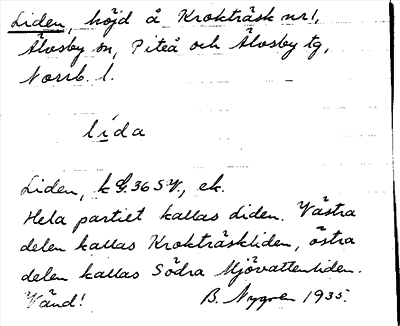 Liden, höjd å Krokträsk nr 1,
Älvsby sn, Piteå och Älvsby tg,
Norrb. l.
lida
Liden, k 36 SV, ek.
Hela partiet kallas Liden. Västra
delen kallas Krokträskliden, östra
delen kallas Södra Mjövattenliden.
Vänd! B. Nygren 1935.